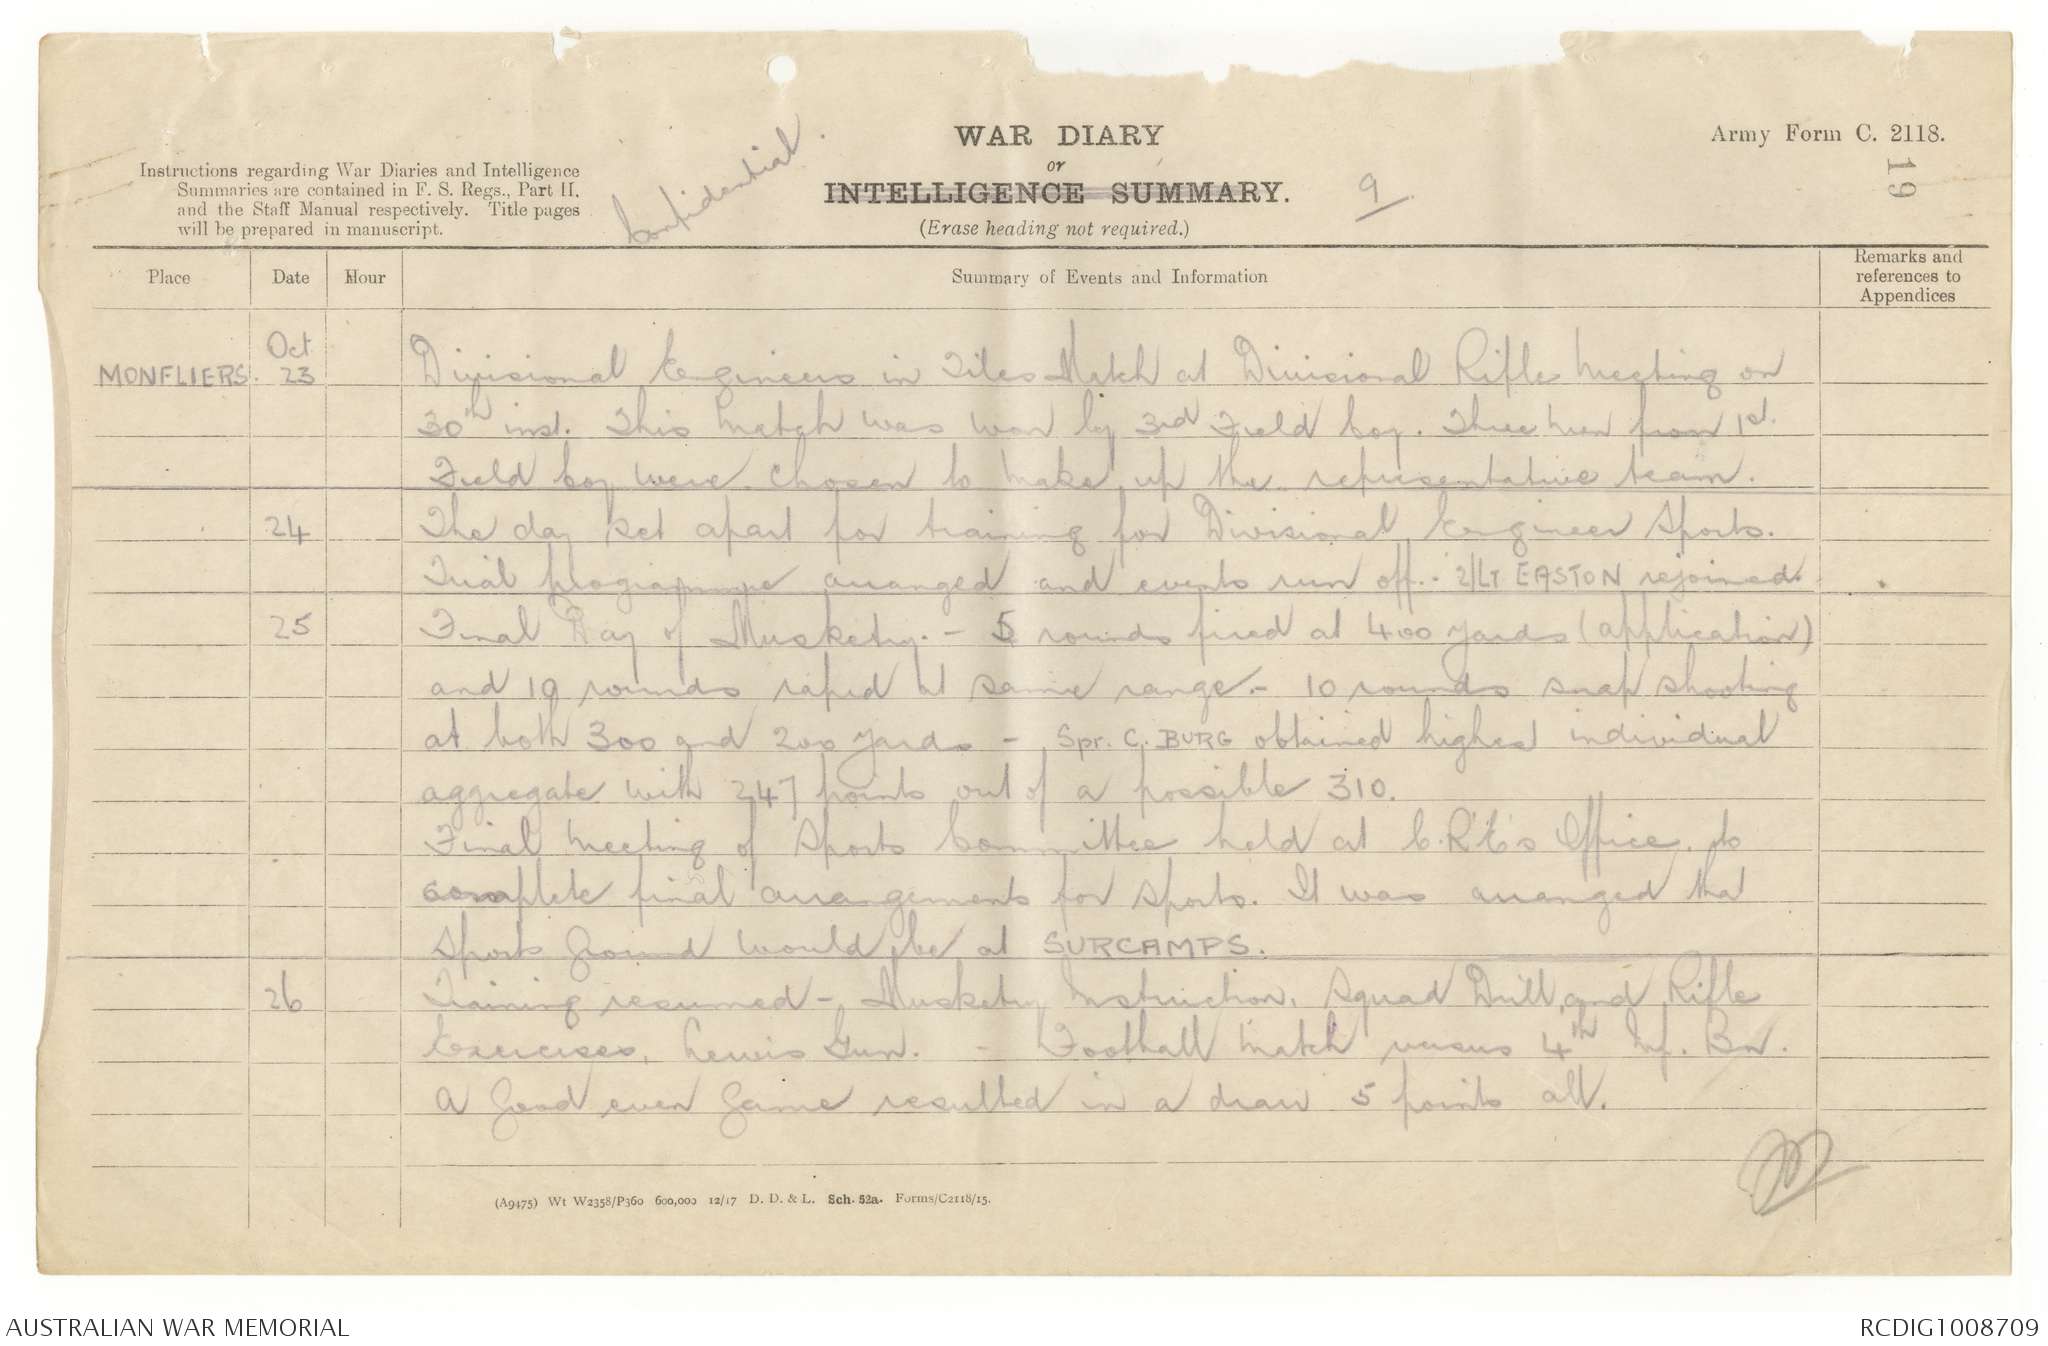 WAR DIARY
or
INTELLIGENCE SUMMARY.
(Erase heading not required.)
Army Form C. 2118.
19
9
Confidential.
Instructions regarding War Diaries and Intelligence
Summaries are contained in F. S. Regs., Part II.
and the Staff Manual respectively. Title pages
will be prepared in manuscript.
Place Date Hour Summary of Events and Information Remarks and references to Appendices
MONFLIERS. Oct 23 Divisional Engineers in Tiles Match at Divisional Rifle Meeting on
30th inst. This match was won by 3rd Field Coy. Three men from 1st.
Field Coy were chosen to make up the representative team.
24 The day set apart for training for Divisional Engineer Sports.
Trial programme arranged and events run off. - 2/Lt EASTON rejoined.
25 Final Day of Musketry. - 5 rounds fired at 400 yards (application)
and 10 rounds rapid at same range. - 10 rounds snap shooting
at both 300 and 200 yards - Spr. C. BURG obtained highest individual
aggregate with 247 points out of a possible 310.
Final meeting of Sports Committee held at C.R.E's Office, to
complete final arrangements for sports. It was arranged that
Sports ground would be at SURCAMPS.
26 Training resumed - Musketry Instruction, Squad Drill, and Rifle
Exercises, Lewis Gun. - Football match versus 4th Inf. Bn.
A good even game resulted in a draw 5 points all.
(A9475) Wt W2358/P360 600,000 12/17 D. D. & L. Sch. 52a. Forms/C2118/15.
AUSTRALIAN WAR MEMORIAL
RCDIG1008709